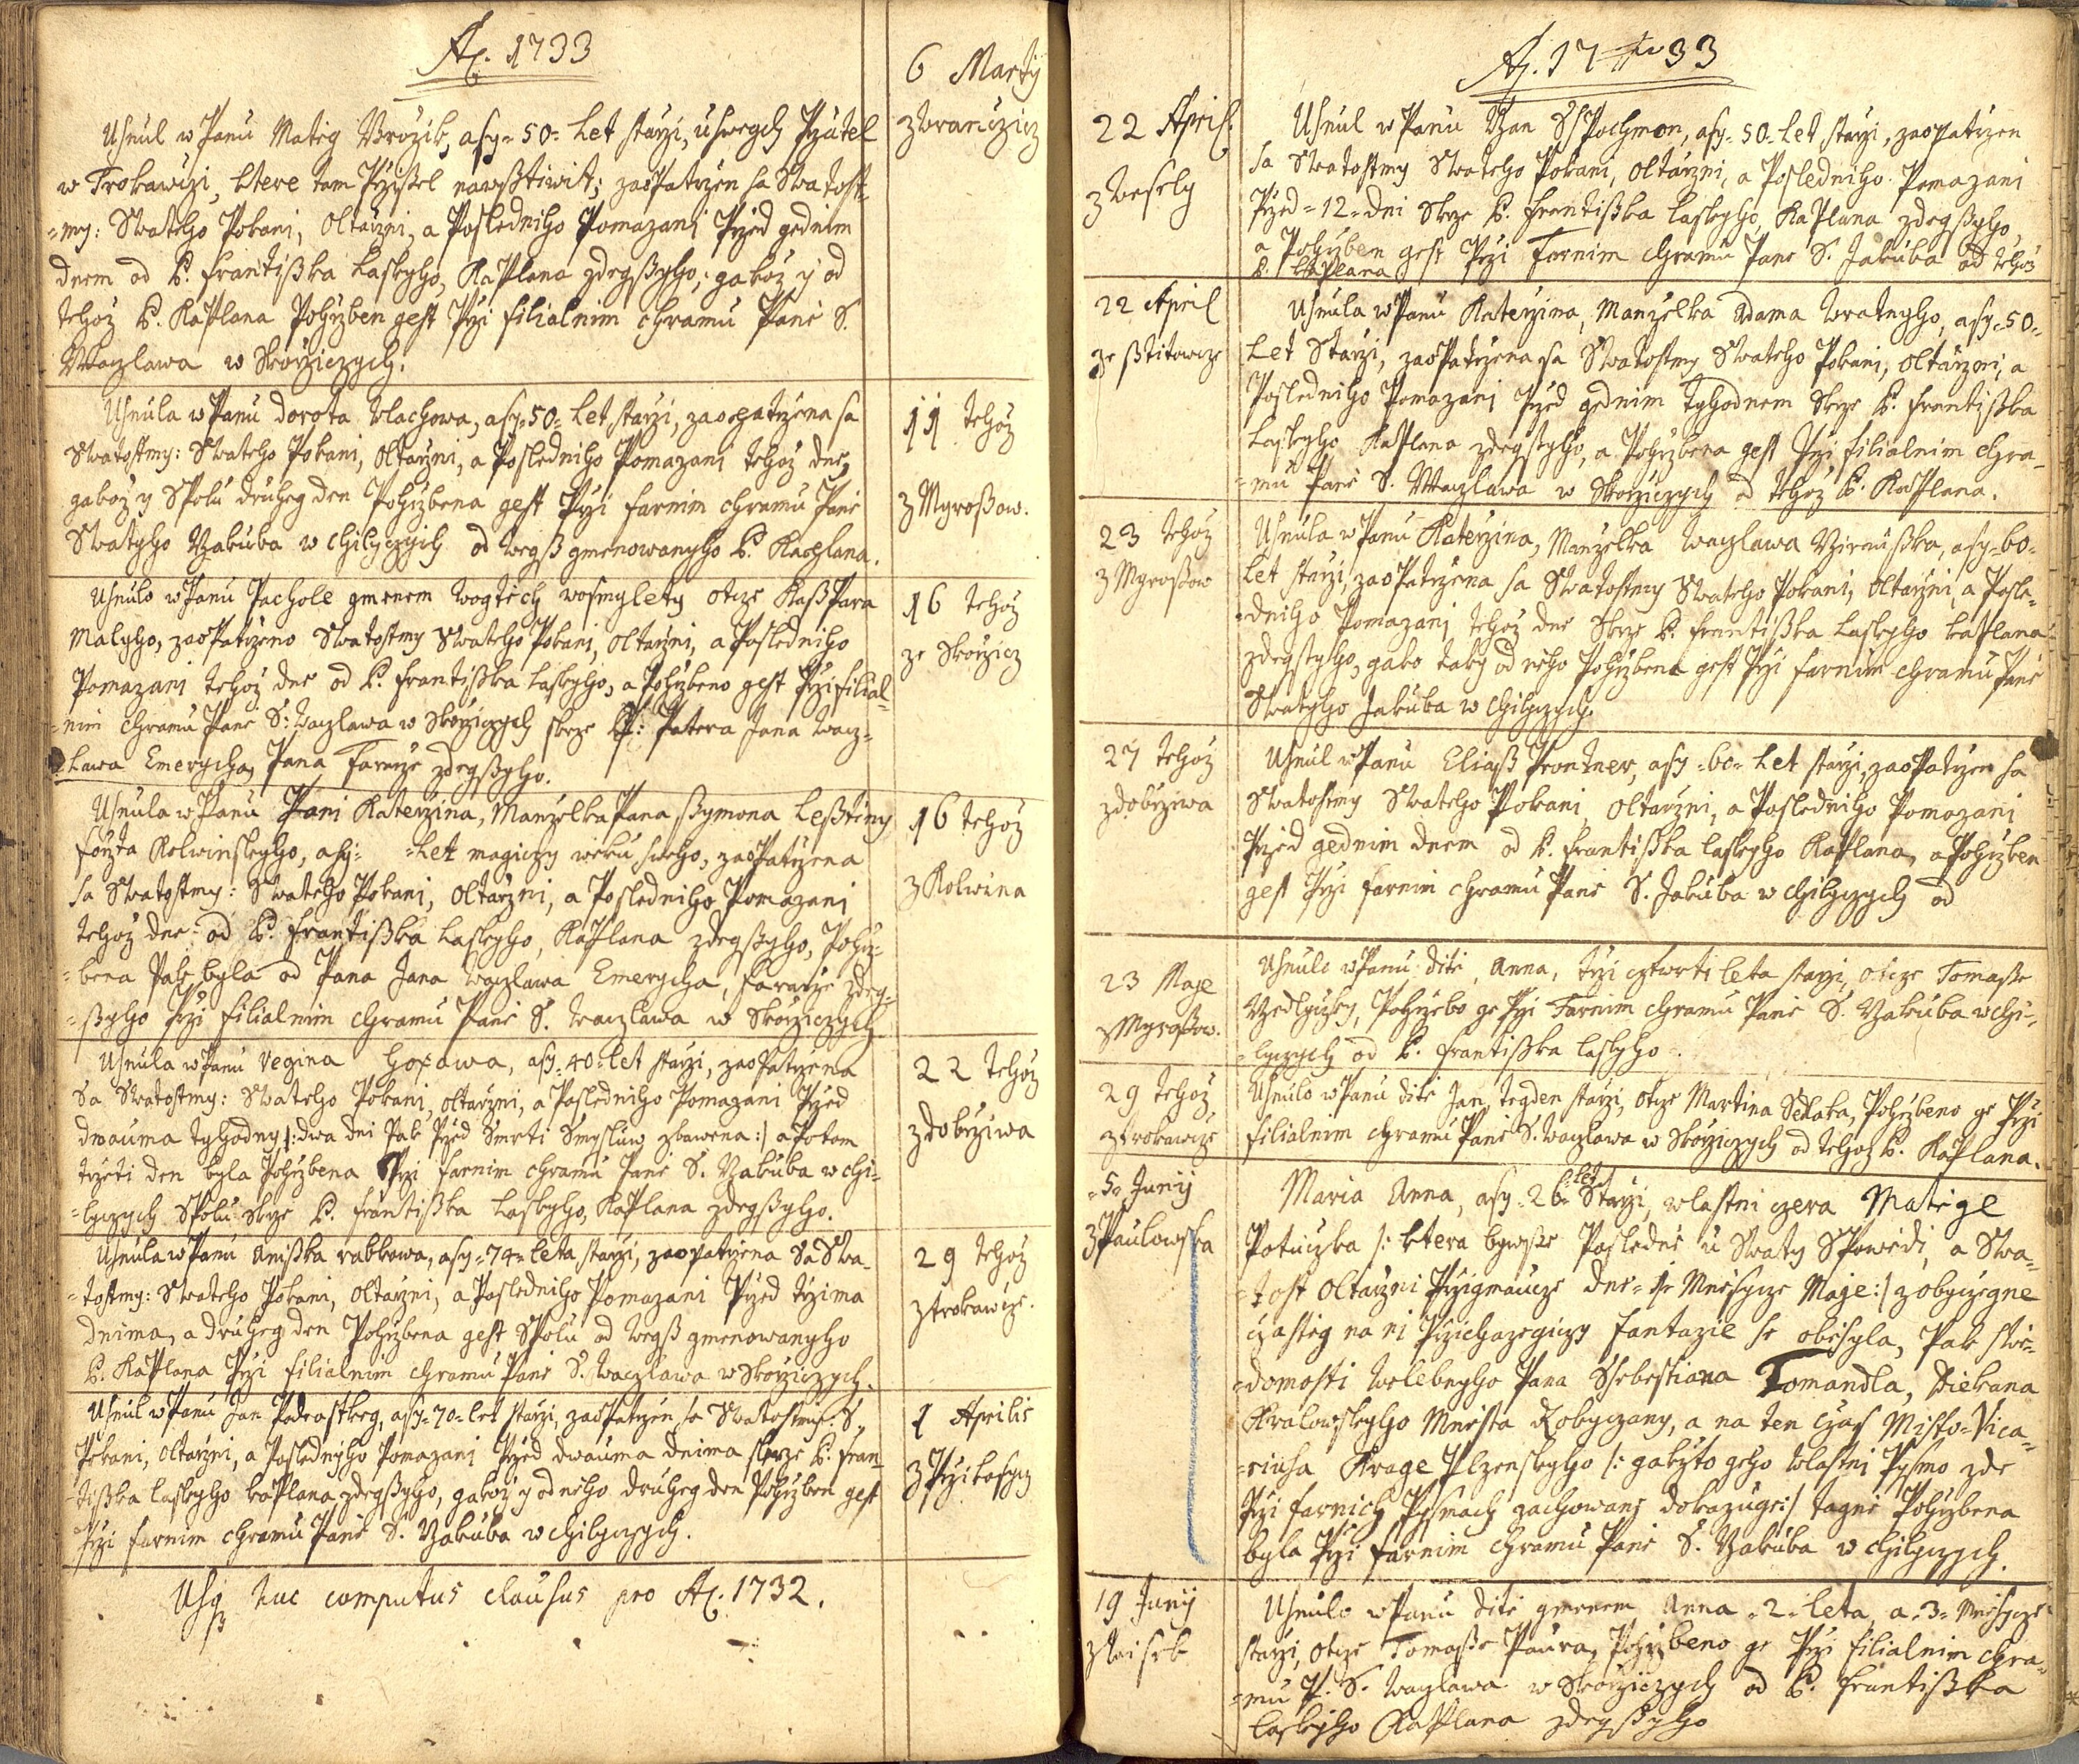 Ao. 1733
6 Martij
z Wranczicz
Usnul w Panu Matieg Wrozik, asy =50= Let starzi, u swegch Przatel
w Trokawczi, ktere tam Przissel nawsstiwit; zaopatrzen sa Swatost-
=my: Swateho Pokani, Oltarzni, a Posledniho Pomazani Przed gednim
dnem od P. Frantisska Laskyho, Kaplana zdegssyho; gakoz y od
tehoz P. Kaplana Pohrzben gest Przi filialnim chramu Panie S.
Waczlawa w Skorziczych.
11 tehoz
z Myrossow.
Usnula w Panu Dorota Wlachowa, asy =50= Let starzi, zaopatrzena sa
Swatostmy: Swateho Pokani, Oltarzni, a Posledniho Pomazani tehoz dne,
gakoz y Spolu druheg den Pohrzbena gest Przi farnim chramu Panie
Swatyho Yakuba w Chilczych od wegss gmenowanyho P. Kaplana.
16 tehoz
ze Skorzicz
Usnulo w Panu Pachole gmenem Wogtiech wosmylety otcze Kasspara
Malyho, zaopatrzeno Swatostmy Swateho Pokani, Oltarzni, a Posledniho
Pomazani tehoz dne od P. Frantisska Laskyho, a Pohrzbeno gest Przi filial-
=nim chramu Panie S: Waczlawa w Skorziczych skrze P: Patera Jana Wacz-
=lawa Emerycha, Pana Faraże zdegssyho.
16 tehoz
z Kolwina
Usnula w Panu Pani Katerzina, Manzelka Pana Ssymona Lesstiny
Forsta Kolwinskyho, asy= =Let magiczy wieku sweho, zaopatrzena
sa Swatostmy: Swateho Pokani, Oltarzni, a Posledniho Pomazani
tehoz dne od P. Frantisska Laskyho, Kaplana zdegssyho, Pohrz-
=bena Pak byla od Pana Jana Waczlawa Emerycha, Faraże zdeg-
=ssyho Przi filialnim chramu Panie S. Waczlawa w Skorziczych
22 tehoz
z Dobrziwa
Usnula w Panu Regina Hosawa, asy =40= Let starzi, zaopatrzena
Sa Swatostmy: Swateho Pokani, Oltarzni, a Posledniho Pomazani Przed
dwauma tyhodny /: dwa dni Pak Przed Smrti Smysluw zbawena :/ a Potom
trzeti den byla Pohrzbena Przi farnim chramu Panie S. Yakuba w Chi-
=lczych Spolu skrze P. Frantisska Laskyho, Kaplana zdegssyho.
29 tehoz
z Trokawcze.
Usnula w Panu Anisska Rabkowa, asy =74= Leta starzi, zaopatrzena Sa Swa-
=tostmy: Swateho Pokani, Oltarzni, a Posledniho Pomazani Przed trzima
dnima, a druheg den Pohrzbena gest Spolu od wegss gmenowanyho
P. Kaplana Przi filialnim chramu Panie S. Waczlawa w Skorziczych.
1 Aprilis
z Przikosycz
Usnul w Panu Jan Podrostkeg, asy =70= let starzi, zaopatrzen sa Swatostmi: S.
Pokani, Oltarzni, a Poslednyho Pomazani Przed dwauma dnima skrze P. Fran-
=tisska Laskyho Kaplana zdegssyho, gakoz y od nieho druheg den Pohrzben gest
Przi farnim chramu Panie S. Yakuba w Chilczych.
Usq huc computus clausus pro Ao. 1732.
Ao. 1733
22 April.
z Wesely
Usnul w Panu Yan Pochmon, asy =50= Let starzi, zaopatrzen
sa Swatostmy Swateho Pokani, Oltarzni, a Posledniho Pomazani
Przed =12= dni Skrze P. Frantisska Laskyho, Kaplana zdegssyho,
a Pohrzben gest Przi Farnim chramu Panie S. Jakuba od tehoz
P. Kaplana
22 April
ze Sstitowcze
Usnula w Panu Katerzina, Manzelka Adama Wratnyho, asy =50=
Let Starzi, zaopatrzena sa Swatostmy Swateho Pokani, Oltarzni, a
Posledniho Pomazani Przed gednim Tyhodnem Skrze P. Frantisska
Laskyho Kaplana zdegssyho, a Pohrzbena gest Przi filialnim chra-
=mu Panie S. Waczlawa w Skorziczych od tehoz P. Kaplana.
23 tehoz
z Myrossow
Usnula w Panu Katerzina, Manzelka Waczlawa Yirausska, asy =60=
Let starzi, zaopatrzena sa Swatostmy Swateho Pokani, Oltarzni, a Posle-
=dniho Pomazani tehoz dne Skrze P. Frantisska Laskyho Kaplana
zdegssyho, gako taky od nieho Pohrzbena gest Przi farnim chramu Panie
Swatyho Jakuba w Chilczych.
27 tehoz
z Dobrziwa
Usnul w Panu Eliass Prontner, asy =60= Let starzi, zaopatrzen sa
Swatostmy Swateho Pokani, Oltarzni, a Posledniho Pomazani
Przed gednim dnem od P. Frantisska Laskyho Kaplana, a Pohrzben
gest Przi farnim chramu Panie S. Jakuba w Chilczych od
23 Maje
z Myrossow.
Usnulo w Panu ditie, Anna, trzi cztwrti leta starzi, otcze Tomasse
Yedlyczky, Pohrzbeno ge Przi Farnim chramu Panie S. Yakuba w Chi-
=lczych od P. Frantisska Laskyho.
29 tehoz
z Trokawcze
Usnulo w Panu ditie Jan, tegden starzi, otcze Martina Sedlaka, Pohrzbeno ge Przi
filialnim chramu Panie S. Waczlawa w Skorziczych od tehoz P. Kaplana.
=5= Junij
z Paulowska
Maria Anna, asy =26= Let Starzi, wlastni czera Matiege
Potuczka /: ktera bywsse Posledne u Swaty Spowiedi, a Swa-
=tost Oltarzni Przigmaucze dne Mniesycze Maje :/ z obyczegne
czastieg na ni Przichazegiczy fantazie se obiesyla, Pak s wie-
=domosti Welebnyho Pana Ssebestiana Tomandla, Diekana
Kralowskyho Miesta Rokyczany, a na ten czas Misto-Vica-
=riusa Krage Plzenskyho /: gakżto geho wlastni Pysmo zde
Przi farnich Pysmach zachowany dokazuge :/ tagnie Pohrzbena
byla Przi farnim chramu Panie S. Yakuba w Chilczych.
19 Junij
Usnulo w Panu ditie gmenem Anna =2= Leta, a =3= Mniesycze
starzi, otcze Tomasse Paura, Pohrzbeno ge Przi filialnim chra-
=mu P. S. Waczlawa w Skorziczych od P. Frantisska
Laskyho Kaplana zdegssyho